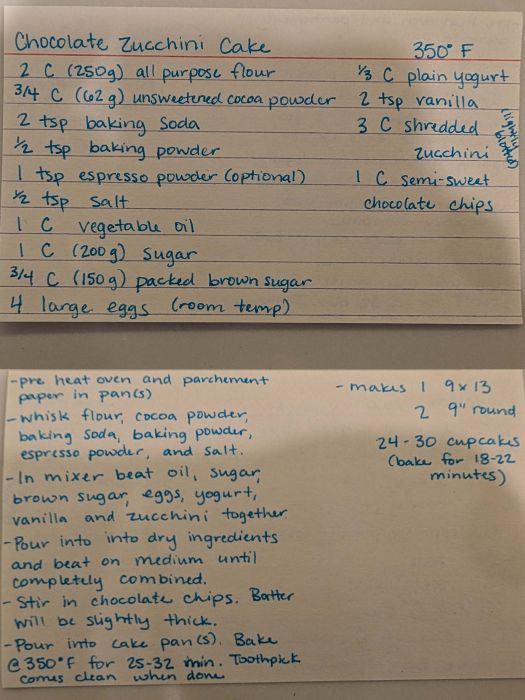 Chocolate Zucchini Cake
350° F
2 C (250g) all purpose flour
3/4 C (62g) unsweetened cocoa powder
2 tsp baking soda
1/2 tsp baking powder
1 tsp espresso powder (optional)
1/2 tsp salt
1 C vegetable oil
1 C (200g) sugar
3/4 C (150g) packed brown sugar
4 large eggs (room temp)
1/3 C plain yogurt
2 tsp vanilla
3 C shredded
zucchini
(lightly
blotted)
1 C semi-sweet
chocolate chips
- pre heat oven and parchement
paper in pan(s)
- whisk flour, cocoa powder,
baking soda, baking powder,
espresso powder, and salt.
- In mixer beat oil, sugar,
brown sugar, eggs, yogurt,
vanilla and zucchini together.
- Pour into into dry ingredients
and beat on medium until
completely combined.
- Stir in chocolate chips. Batter
will be slightly thick.
- Pour into cake pan(s). Bake
@ 350°F for 25-32 min. Toothpick
comes clean when done
- makes 1 9x13
2 9" round
24-30 cupcakes
(bake for 18-22
minutes)